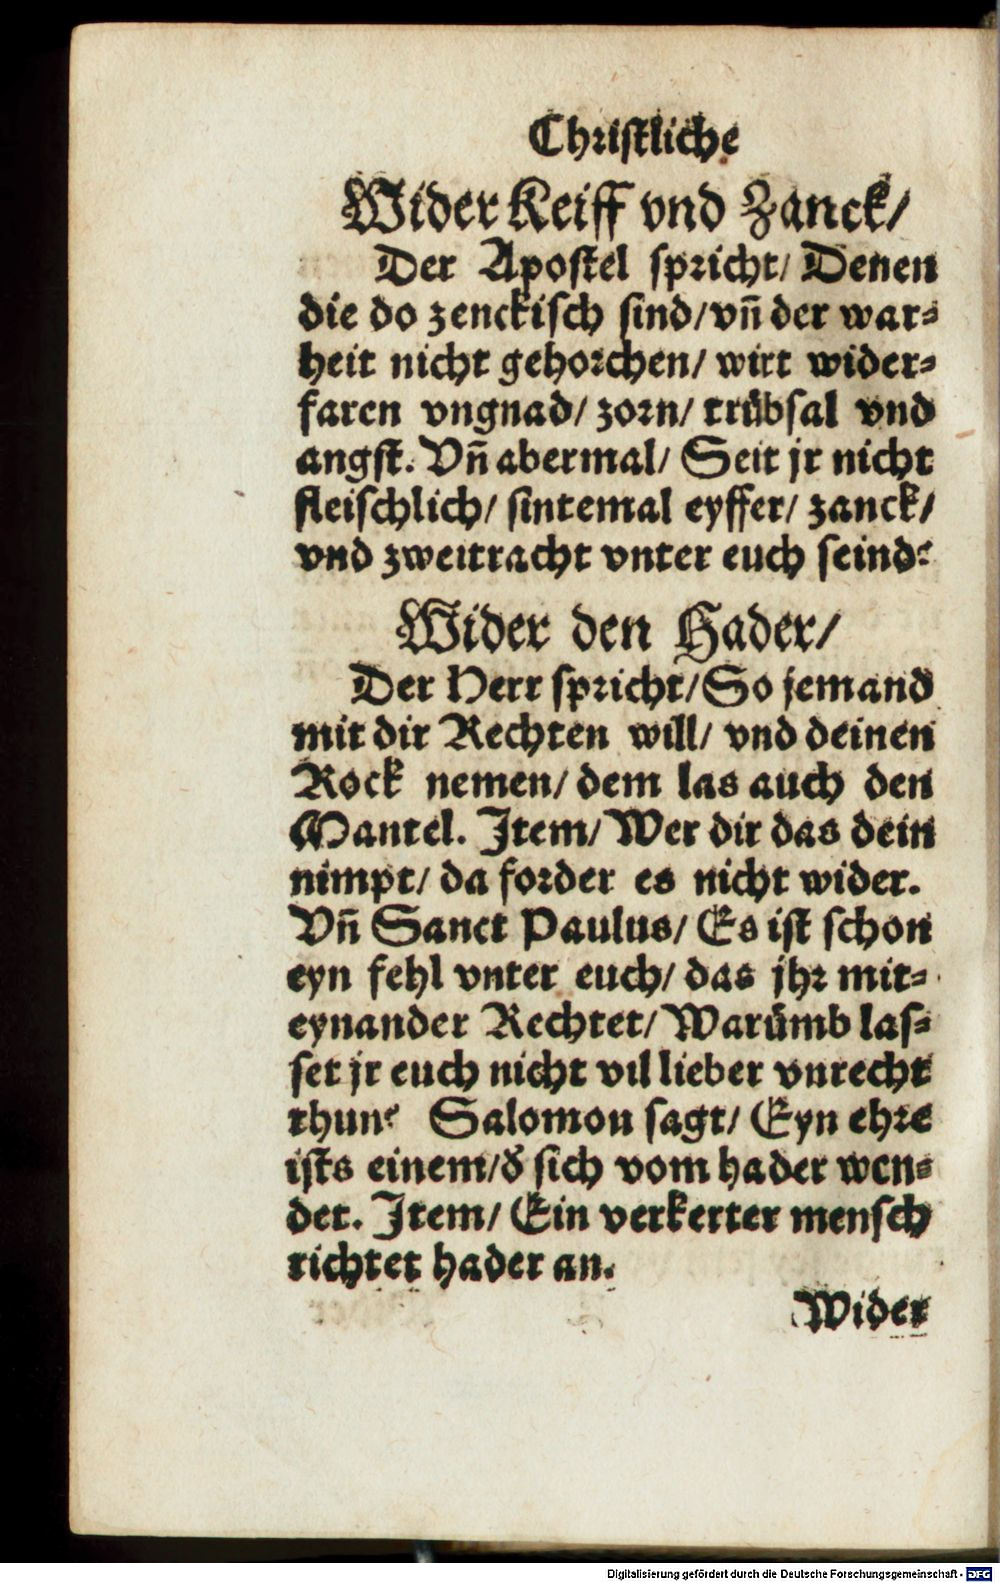 Christliche
Wider Keiff vnd Zanck/
Der Apostel spricht/ Denen
die do zenckisch sind/ vn̄ der war⸗
heit nicht gehorchen/ wirt wider⸗
faren vngnad/ zorn/ trübsal vnd
angst. Vn̄ abermal/ Seit jr nicht
fleischlich/ sintemal eyffer/ zanck/
vnd zweitracht vnter euch seind?
Wider den Hader/
Der Herr spricht/ So jemand
mit dir Rechten will/ vnd deinen
Rock nemen/ dem las auch den
Mantel. Item/ Wer dir das dein
nimpt/ da forder es nicht wider.
Vn̄ Sanct Paulus/ Es ist schon
eyn fehl vnter euch/ das jhr mit⸗
eynander Rechtet/ Warümb las⸗
set jr euch nicht vil lieber vnrecht
thun? Salomon sagt/ Eyn ehre
ists einem/ d̄ sich vom hader wen⸗
det. Item/ Ein verkerter mensch
richtet hader an.
Wider
Digitalisierung gefördert durch die Deutsche Forschungsgemeinschaft - DFG